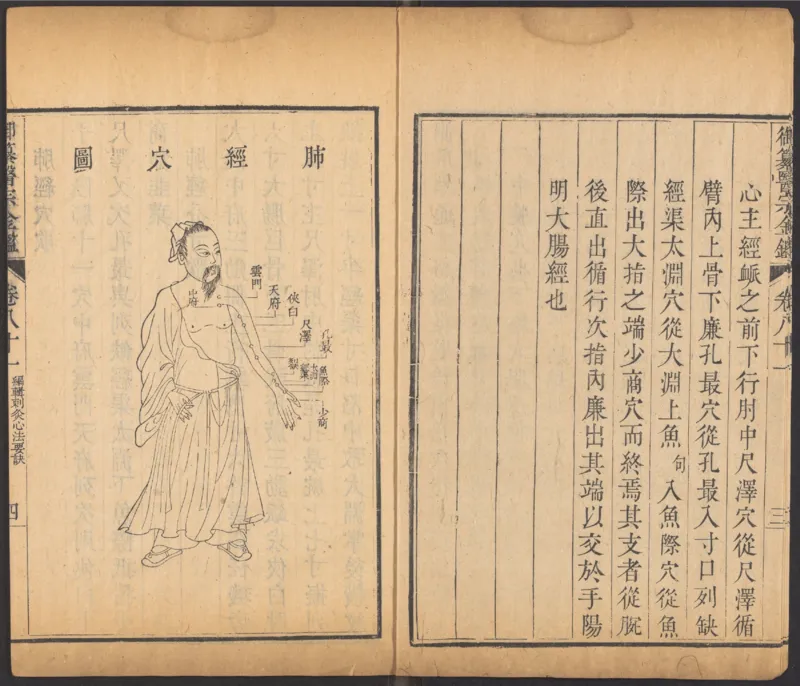 御纂醫宗金鑑
卷八十一
三
心主經脈之前下行肘中尺澤穴從尺澤循
臂內上骨下廉孔最穴從孔最入寸口列缺
經渠太淵穴從太淵上魚句入魚際穴從魚
際出大指之端少商穴而終焉其支者從腕
後直出循行次指內廉出其端以交於手陽
明大腸經也
肺經穴圖
雲門
中府
天府
俠白
尺澤
孔最
魚際
少商
御纂醫宗金鑑
卷八十一
編輯刺灸心法要訣
四
肺經穴歌